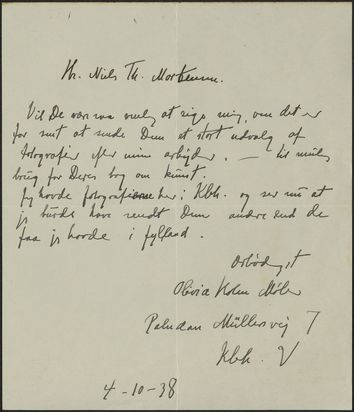 Hr. Niels Th. Mortensen.
Vil De være saa venlig at sige mig, om det er
for sent at sende Dem et stort udvalg af
fotografier efter mine arbejder. — til mulig
brug for Deres bog om kunst.
Jeg havde fotografierne her i Kbh. og ser nu at
jeg burde have sendt Dem andre end de
faa jeg havde i Jylland.
Ærbødigst
Olivia Holm Møller
Paludan Müllersvej 7
Kbh. V
4-10-38